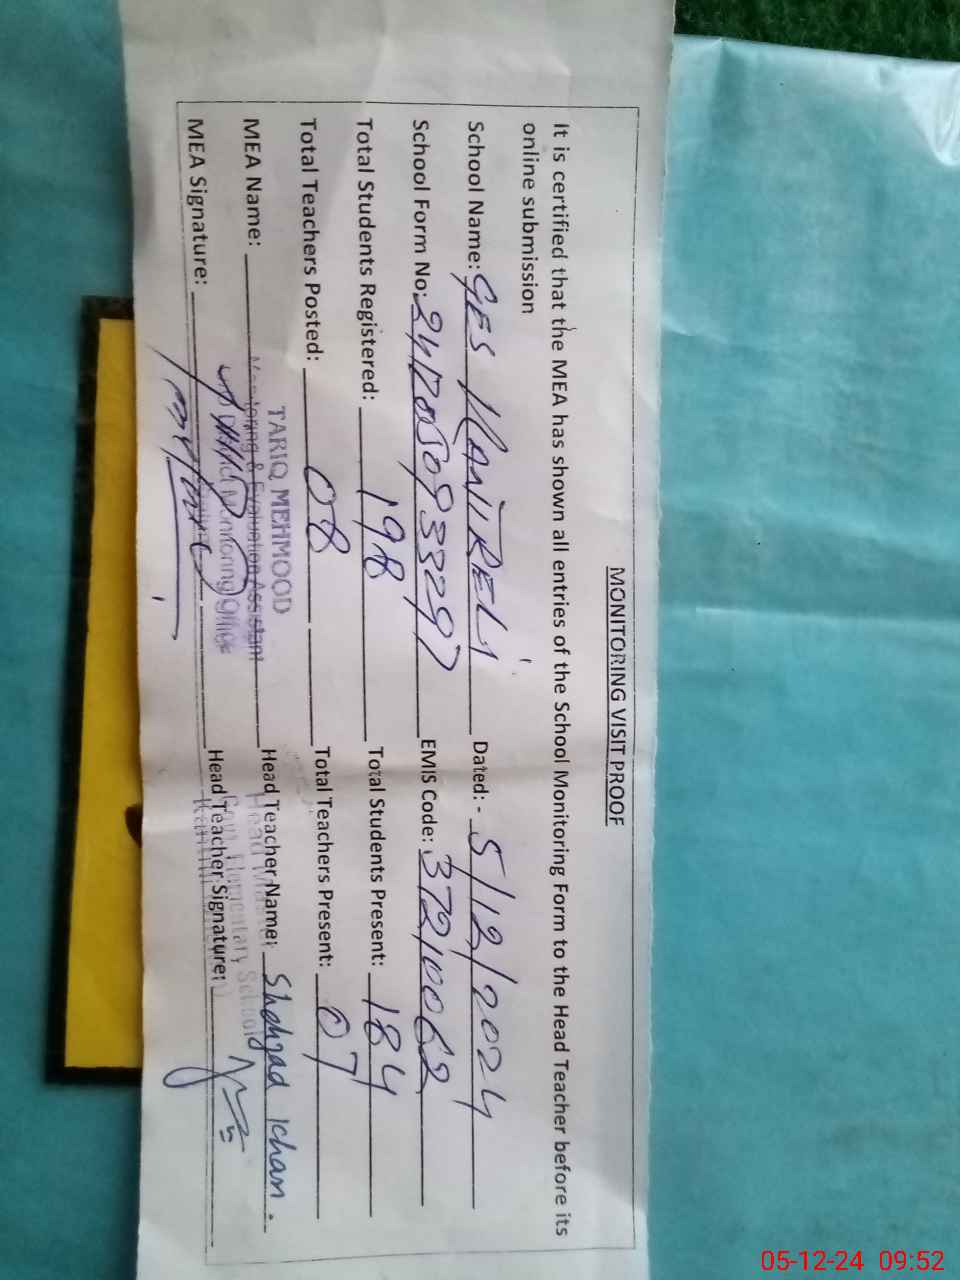 MONITORING VISIT PROOF
It is certified that the MEA has shown all entries of the School Monitoring Form to the Head Teacher before its
online submission
School Name: GES Dated: - 5/12/2024
School Form No: EMIS Code: 37210062
Total Students Registered: 198 Total Students Present: 184
Total Teachers Posted: 08 Total Teachers Present: 07
TARIQ MEHMOOD
MEA Name: Monitoring & Evaluation Assistant Head Teacher Name: Shahzad Khan.
Head Master
District Monitoring Office
Govt. Elementary School
MEA Signature: Head Teacher Signature:
05-12-24 09:52